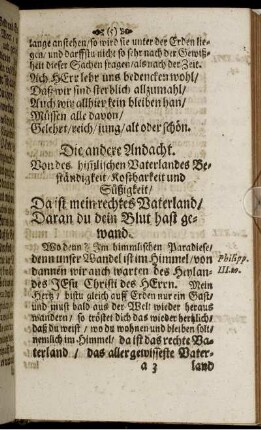 (5)
lange anstehen/so wird sie unter der Erden lie-
gen/und darffstu nicht so sehr nach der Gewiß-
heit dieser Sachen fragen/als nach der Zeit.
Ach HErr lehr uns bedencken wohl/
Daß wir sind sterblich allzumahl/
Auch wir allhier kein bleiben han/
Müssen alle davon/
Gelehrt/reich/jung/alt oder schön.
Die andere Andacht.
Von des himlischen Vaterlandes Be-
ständigkeit/Kostbarkeit und
Süßigkeit/
Da ist mein rechtes Vaterland/
Daran du dein Blut hast ge-
wand.
Wo denn? Im himmlischen Paradiese/
denn unser Wandel ist im Himmel/von
dannen wir auch warten des Heylan-
des JEsu Christi des HErrn. Mein
Hertz/ bistu gleich auff Erden nur ein Gast/
und must bald aus der Welt wieder heraus
wandern/ so tröstet dich das wieder hertzlich/
daß du weist/ wo du wohnen und bleiben solt/
nemlich im Himmel/ da ist das rechte Va-
terland/ das allergewisseste Vater-
a 3 land
Philipp.
III. 20.